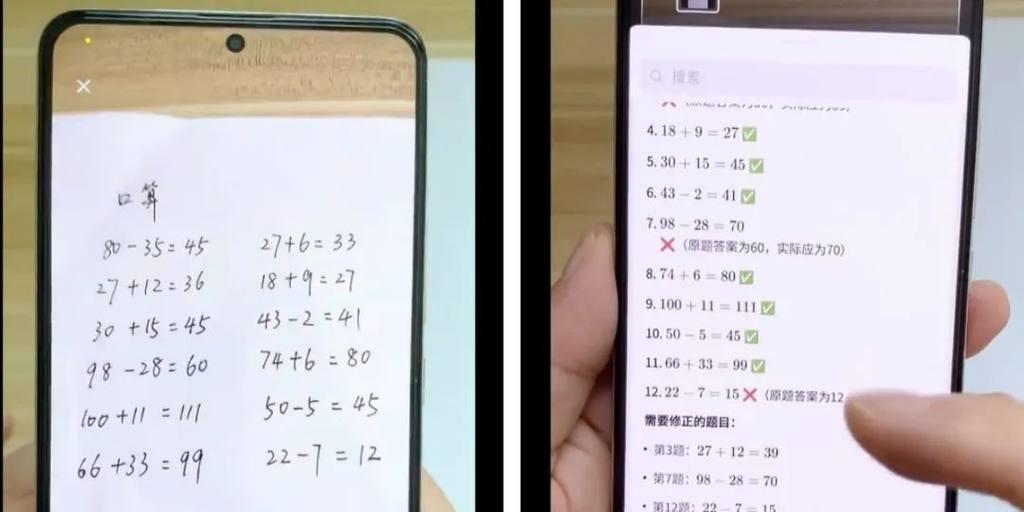 口算
80-35=45 27+6=33
27+12=36 18+9=27
30+15=45 43-2=41
98-28=60 74+6=80
100+11=111 50-5=45
66+33=99 22-7=12
搜索
4. 18 + 9 = 27 ✅
5. 30 + 15 = 45 ✅
6. 43 − 2 = 41 ✅
7. 98 − 28 = 70
❌（原题答案为60，实际应为70）
8. 74 + 6 = 80 ✅
9. 100 + 11 = 111 ✅
10. 50 − 5 = 45 ✅
11. 66 + 33 = 99 ✅
12. 22 − 7 = 15 ❌（原题答案为12
需要修正的题目：
• 第3题：27 + 12 = 39
• 第7题：98 − 28 = 70
• 第12题：22 − 7 = 15